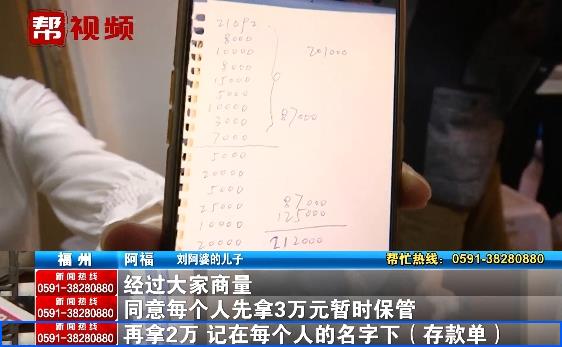 帮视频
21092
8000
10000 201000
8000
15000
5000
10000
3000 87000
7000
5000
20000
5000
25000 87000
10000 125000
20000 212000
福州 阿福 刘阿婆的儿子 帮忙热线：0591-38280880
新闻热线
0591-38280880
经过大家商量
新闻热线
0591-38280880
同意每个人先拿3万元暂时保管
新闻热线
0591-38280880
再拿2万 记在每个人的名字下（存款单）